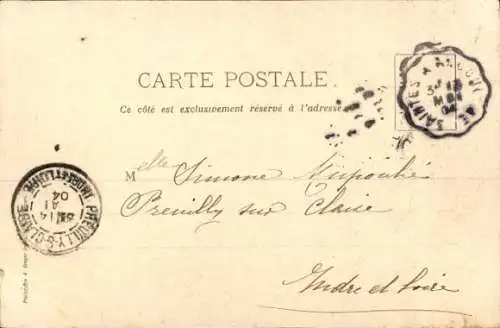 CARTE POSTALE.
Ce côté est exclusivement réservé à l'adresse
SAINTES A
3
04
Melle Simone
Preuilly sur Claise
Indre et Loire
PREUILLY-S-CLAISE
INDRE-ET-LOIRE
14
04